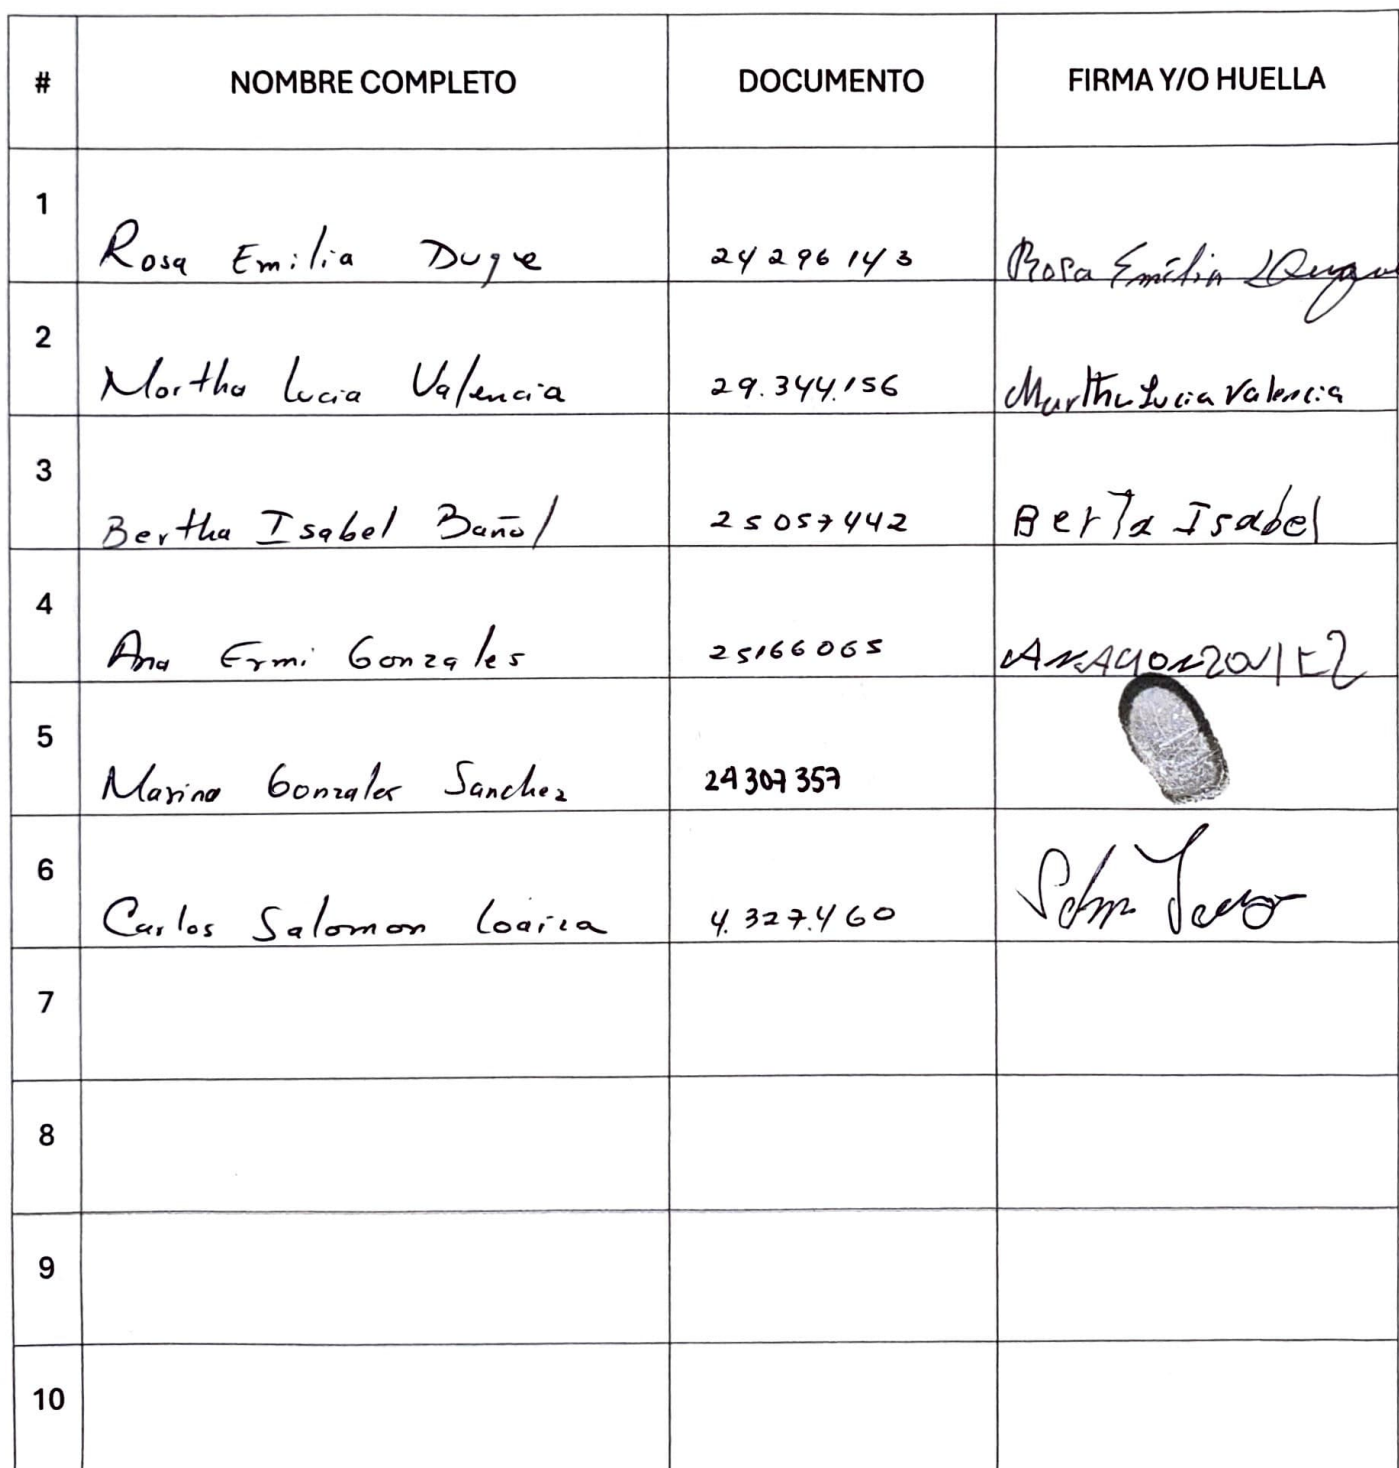 # NOMBRE COMPLETO DOCUMENTO FIRMA Y/O HUELLA
1 Rosa Emilia Duque 24296143 Rosa Emilia Duque
2 Martha Lucia Valencia 29.344.156 Martha Lucia Valencia
3 Bertha Isabel Bañol 25057442 Berta Isabel
4 Ana Ermi Gonzales 25166065
5 Marina Gonzales Sanchez 24307357
6 Carlos Salomon Loaiza 4.327.460
7
8
9
10